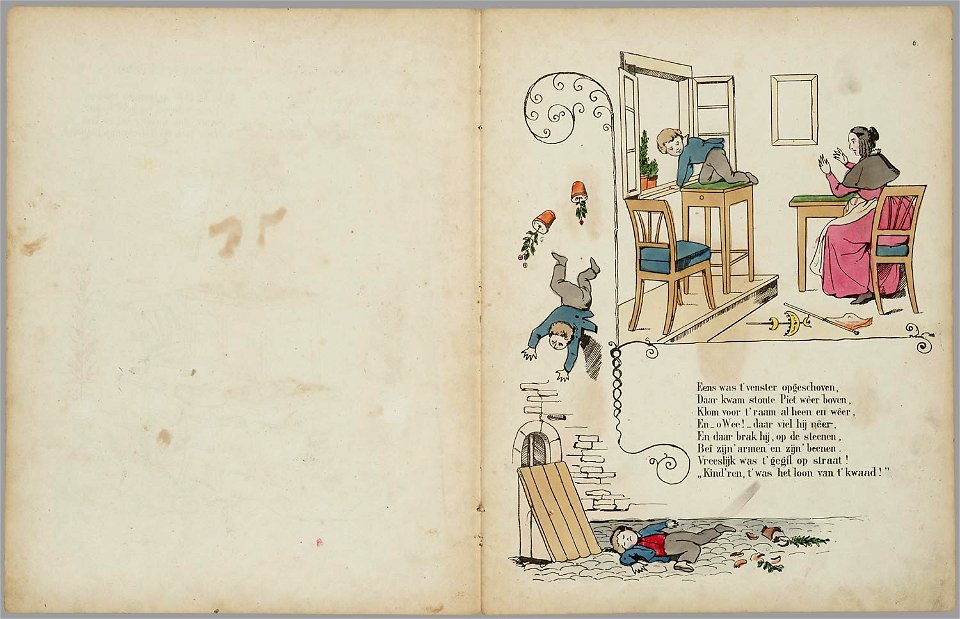 6.
Eens was t'venster opgeschoven,
Daar kwam stoute Piet wêer boven,
Klom voor t'raam al heen en wêer,
En_o Wee!_daar viel hij nêer,
En daar brak hij, op de steenen,
Beî zijn' armen en zijn' beenen.
Vreeslijk was t'gegil op straat!
„Kind'ren, t'was het loon van t'kwaad!"